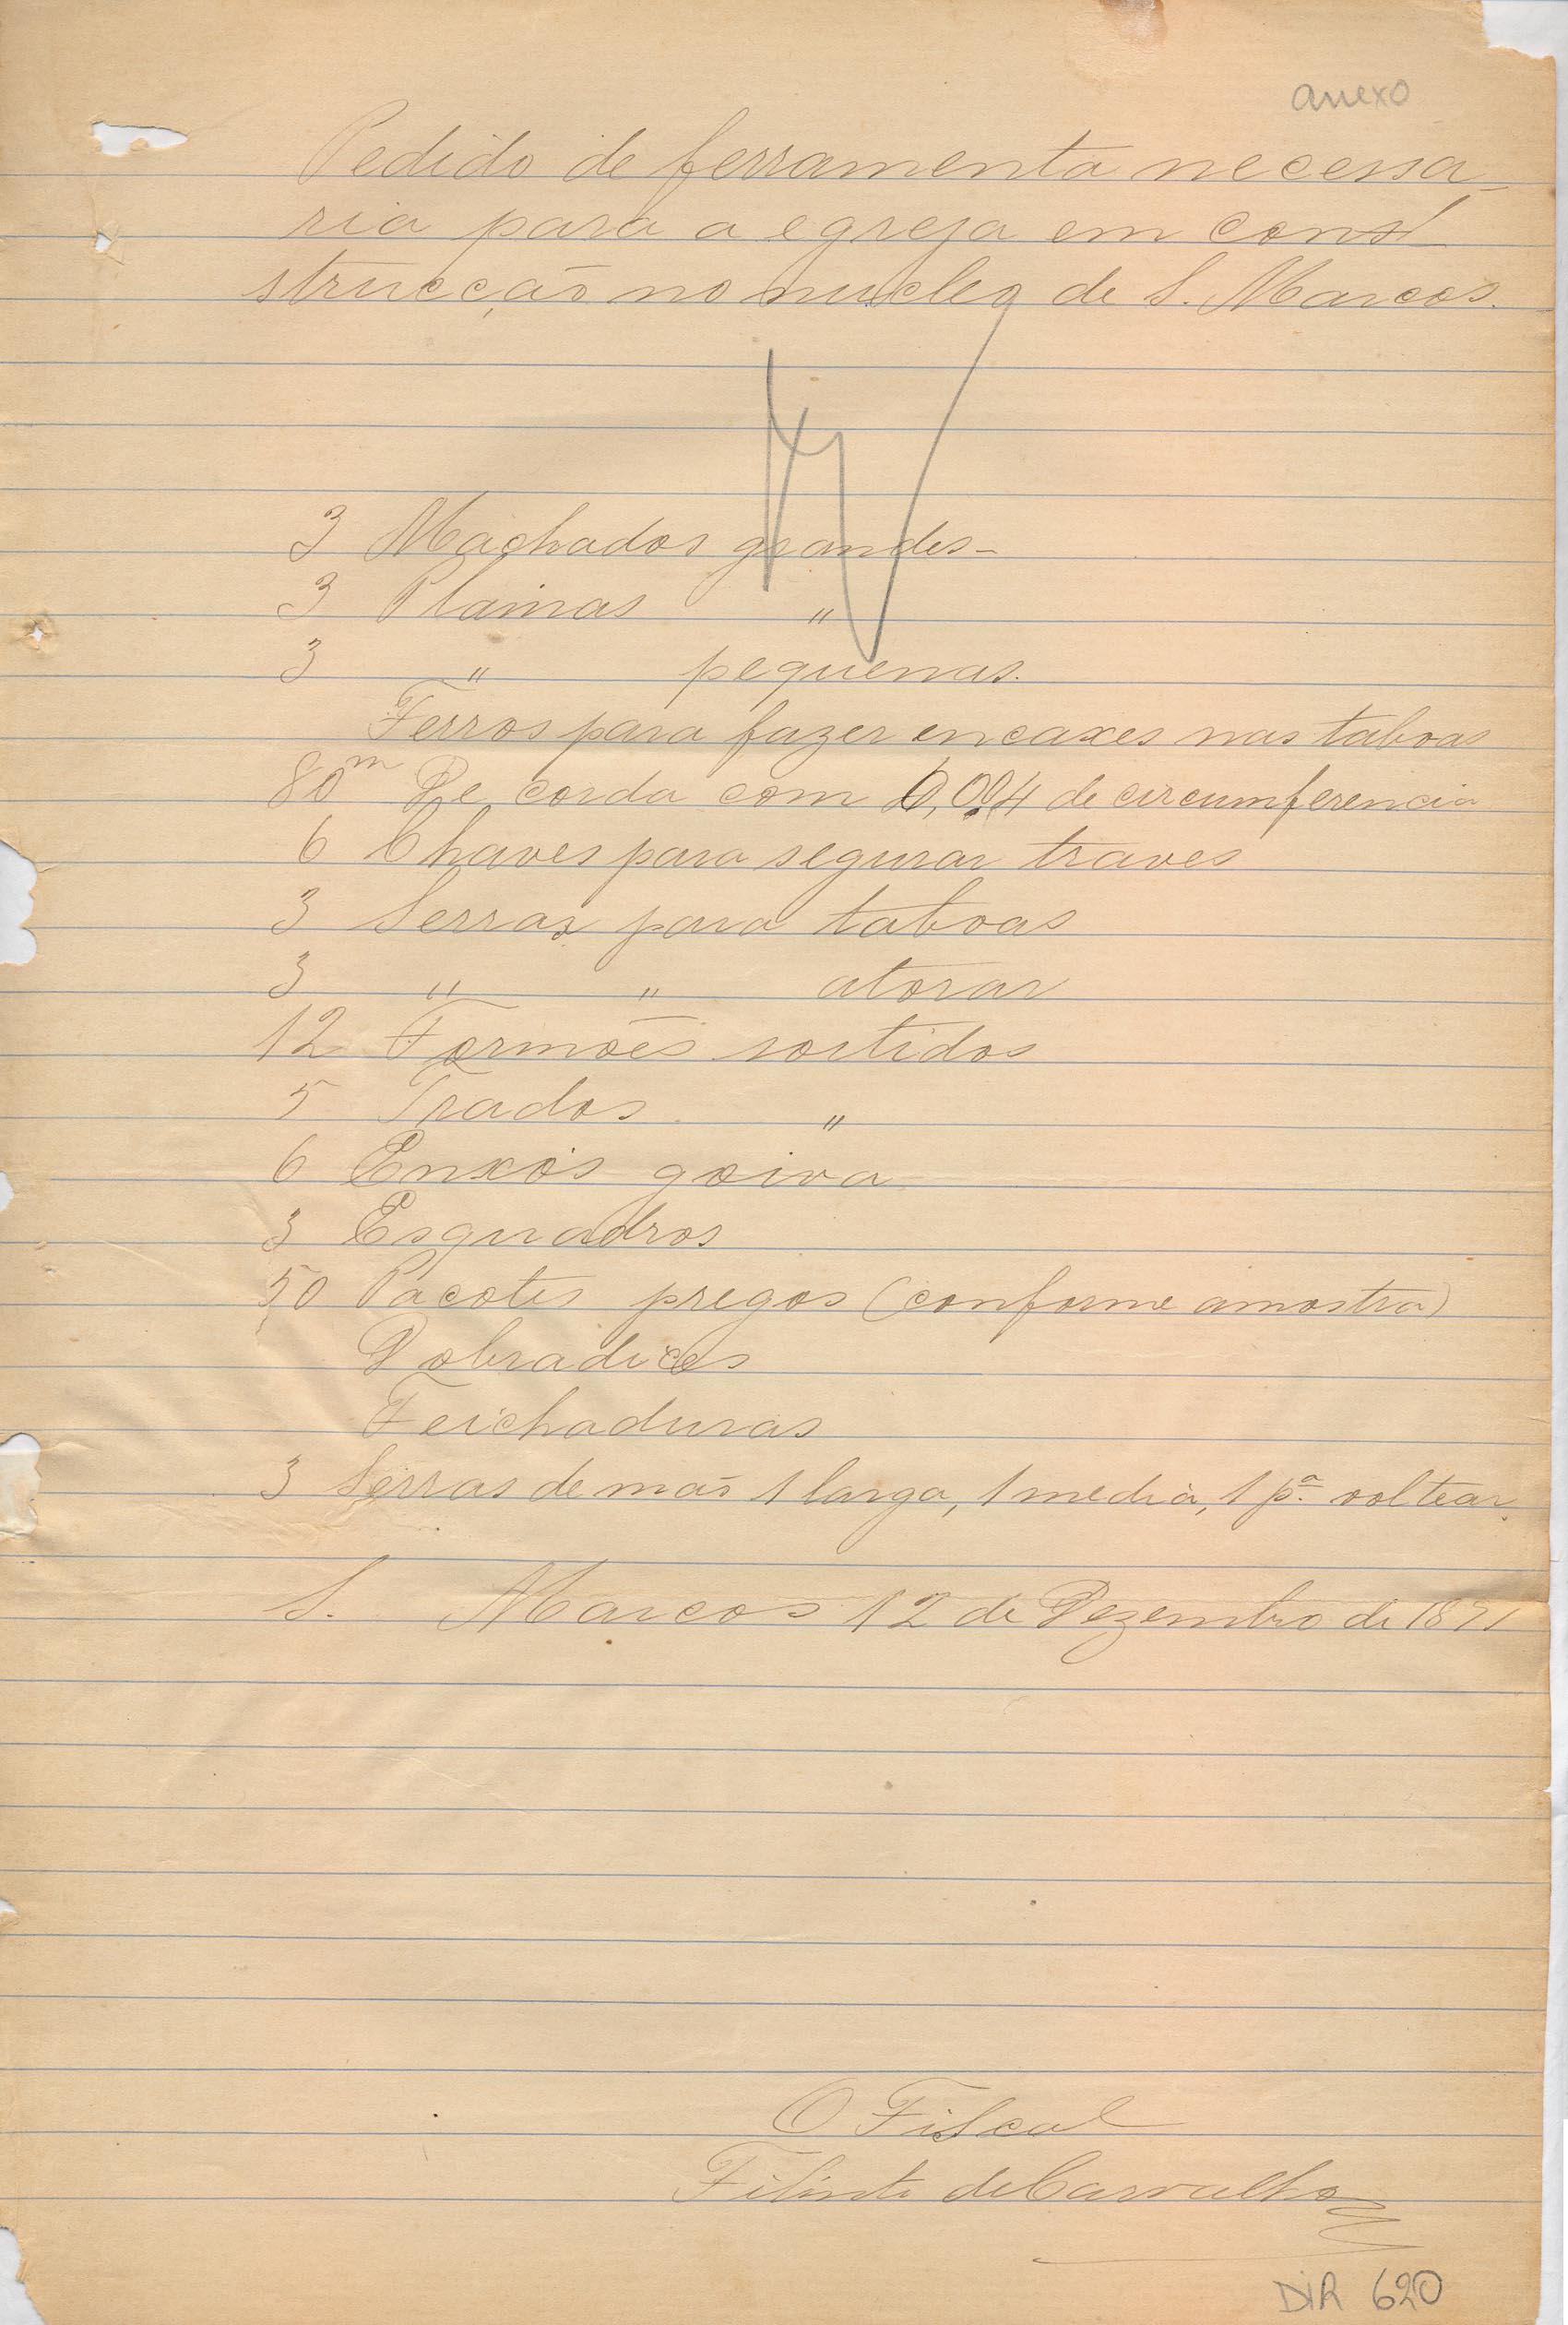 anexo
Pedido de ferramenta necessa-
ria para a egreja em con
strucção no nucleo de S. Marcos.
3 Machados grandes-
3 Plainas "
3 " pequenas.
Ferros para fazer encaxes nas taboas
80m De corda com 0,04 de circumferencia
6 Chaves para segurar traves
3 Serras para taboas
3 " " atorar
12 Formões sortidos
5 Trados "
6 Enxós goiva
3 Esquadros
50 Pacotes pregos (conforme amostra)
Dobradices
Feichaduras
3 Serras de mão 1 larga, 1 media, 1 pª voltear.
S. Marcos 12 de Dezembro de 1891
O Fiscal
Filinto de Carvalho
DIR 620